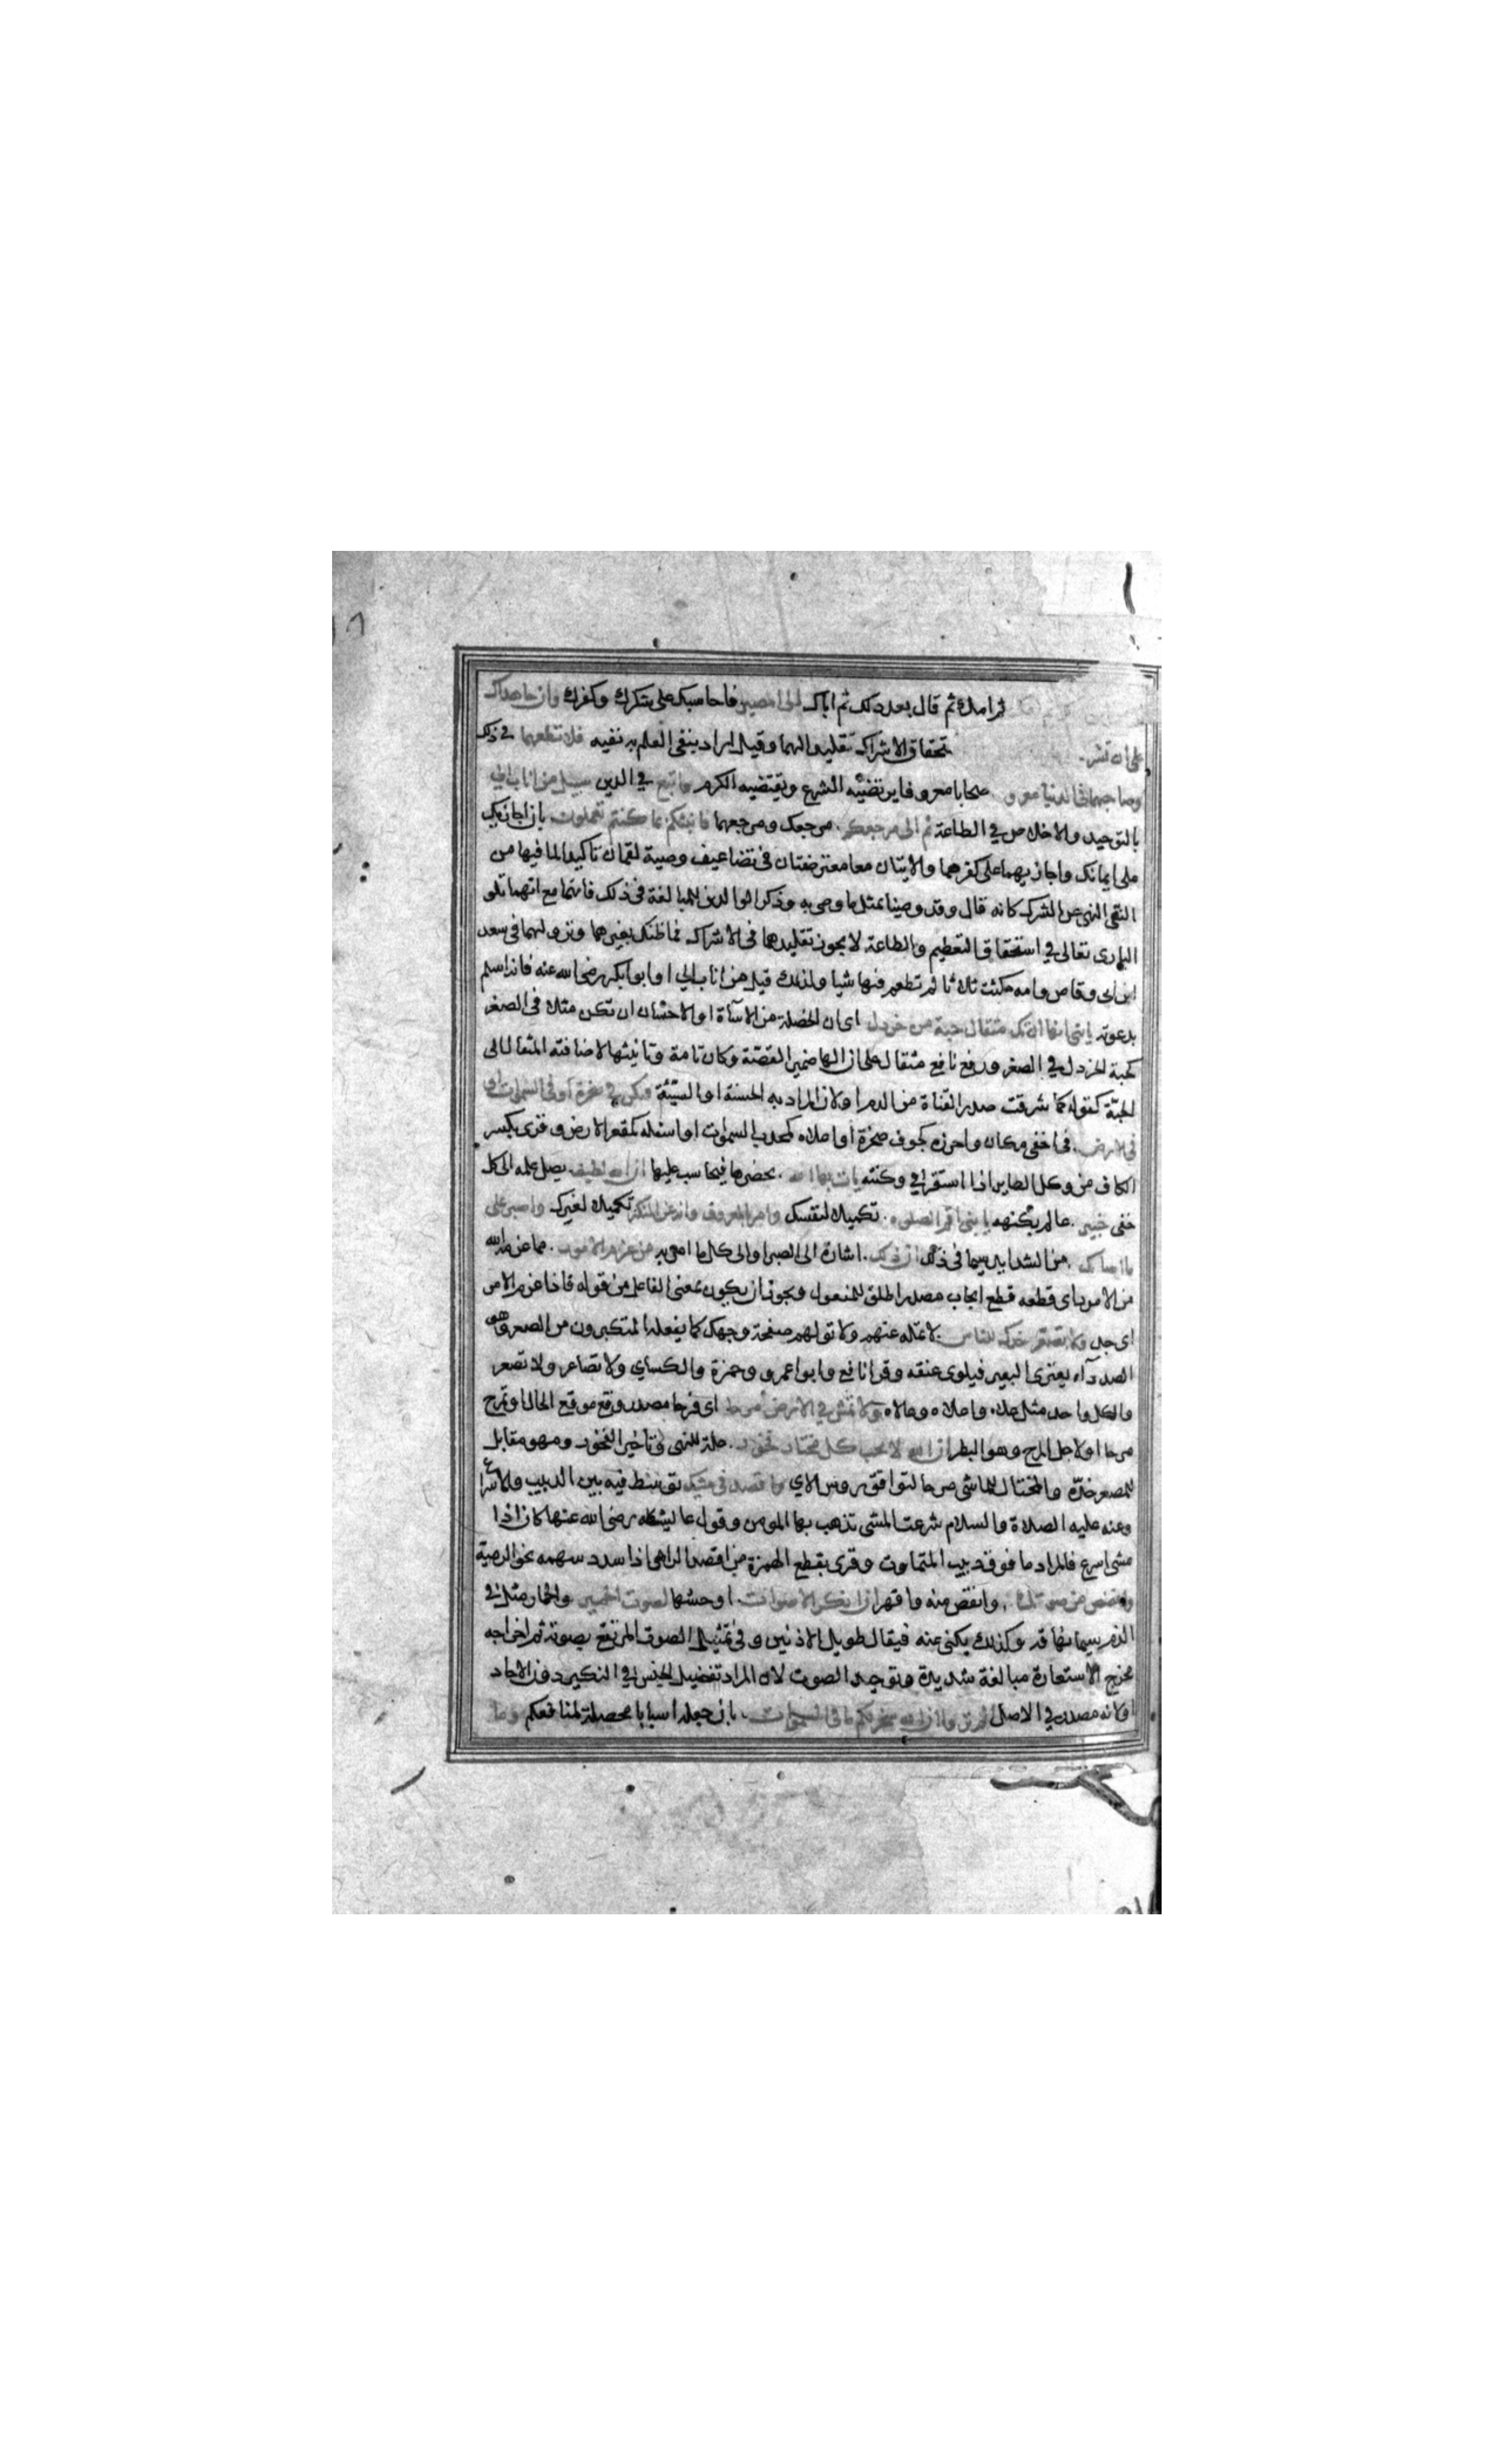 ثم امك ثم قال بعد ذلك ثم اباك الى المصير فاحاسبك على شكرك وكفرك وان جاهداك
على ان تشرك تحقاق الاشراك تقليدا لهما وقيل اراد بنفى العلم به نفيه فلا تطعهما في ذلك
وصاحبهما في الدنيا معروفا صحابا معروفا يرتضيه الشرع ويقتضيه الكرم واتبع في الدين سبيل من اناب الي
بالتوحيد والاخلاص في الطاعة ثم الى مرجعكم مرجعك ومرجعهما فانبئكم بما كنتم تعملون بان اجازيك
على ايمانك واجازيهما على كفرهما والايتان معا معترضتان في تضاعيف وصية لقمان تاكيدا لما فيها من
النهى عن الشرك كانه قال وقد وصينا بمثل ما وصى به وذكر الوالدين للمبالغة في ذلك فانهما مع انهما تلو
البارى تعالى في استحقاق التعظيم والطاعة لا يجوز تقليدهما في الاشراك فما ظنك بغيرهما ونزولهما في سعد
ابن ابى وقاص وامه مكثت ثلاثا لم تطعم فيها شيا ولذلك قيل من اناب الي ابوا بكر رضى الله عنه فانه اسلم
بدعوته يابني انها ان تك مثقال حبة من خردل اى ان الخصلة من الاسآة او الاحسان ان تكن مثلا في الصغر
كحبة الخردل في الصغر ورفع نافع مثقال على ان الها ضمير القصة وكان تامة وتانيثها لاضافته المثقال الى
الحبة كقوله كما شرقت صدر القناة من الدم او لان المراد به الحسنة او السيئة فتكن في صخرة او في السموات او
في الارض في اخفى مكان واحرزه كجوف صخرة او اعلاه كمحدب السموات او اسفله كمقعر الارض وقرى بكسر
الكاف من وكن الطاير اذا استقر في وكنته يات بها الله يحضرها فيحاسب عليها ان الله لطيف يصل علمه الى كل
خفى خبير عالم بكنهه يا بني اقم الصلوه تكميلا لنفسك وامر بالمعروف وانه عن المنكر تكميلا لغيرك واصبر على
ما اصابك من الشدايد سيما في ذلك ان ذلك اشارة الى الصبر او الى كل ما امر به من عزم الامور مما عزمه الله
من الامور اى قطعه قطع ايجاب مصدر اطلق للمفعول ويجوز ان يكون بمعنى الفاعل من قوله فاذا عزم الامر
اى جد ولا تصعر خدك للناس لا تمله عنهم ولا تولهم صفحة وجهك كما يفعله المتكبرون من الصعر وهو
الصد دآء يعترى البعير فيلوى عنقه وقرا نافع وابوا عمرو وحمزة والكساي ولا تصاعر ولا تصعر
والكل واحد مثل علاه واعلاه وعالاه ولا تمش في الارض مرحا اى فرحا مصدر وقع موقع الحال او تمرح
مرحا او لاجل المرح وهو البطر ان الله لا يحب كل مختال فخور علة للنهى وتاخير الفخور وهو مقابل
للمصعر خده والمختال للماشى مرحا لتوافق روس الاي واقصد في مشيك توسط فيه بين الدبيب والاسراع
وعنه عليه الصلاة والسلام سرعت المشى تذهب بها المومن وقول عايشه رضى الله عنها كان اذا
مشى اسرع فالمراد ما فوق دبيب المتماوت وقرى بقطع الهمزة من اقصد الرامى اذا سدد سهمه نحو الرمية
واغضض من صوتك وانقص منه واقصر ان انكر الاصوات اوحشها لصوت الحمير والحمار مثل في
الذم سيما نهاقه وكذلك يكنى عنه فيقال طويل الاذنين وفي تمثيل الصوت المرتفع بصوته ثم اخراجه
مخرج الاستعارة مبالغة شديدة وتوحيد الصوت لان المراد تفضيل الجنس في النكير دون الاحاد
او لانه مصدر في الاصل الم تروا ان الله سخر لكم ما في السموات بان جعله اسبابا محصلة لمنافعكم وما